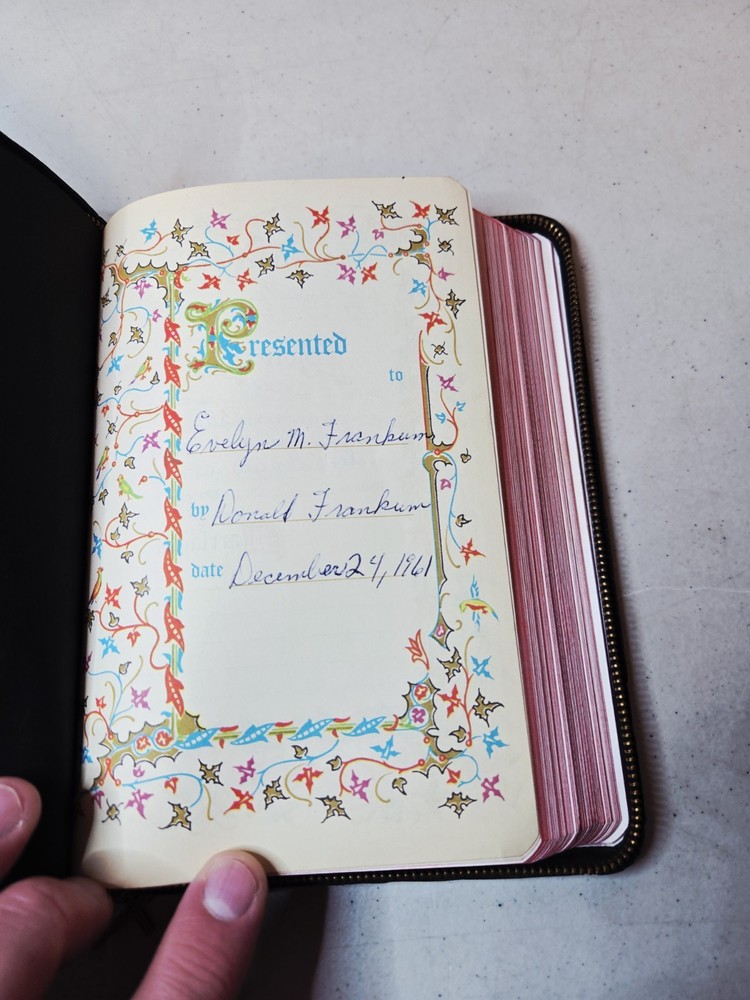 Presented
to
Evelyn M. Frankum
by Donald Frankum
date December 24, 1961